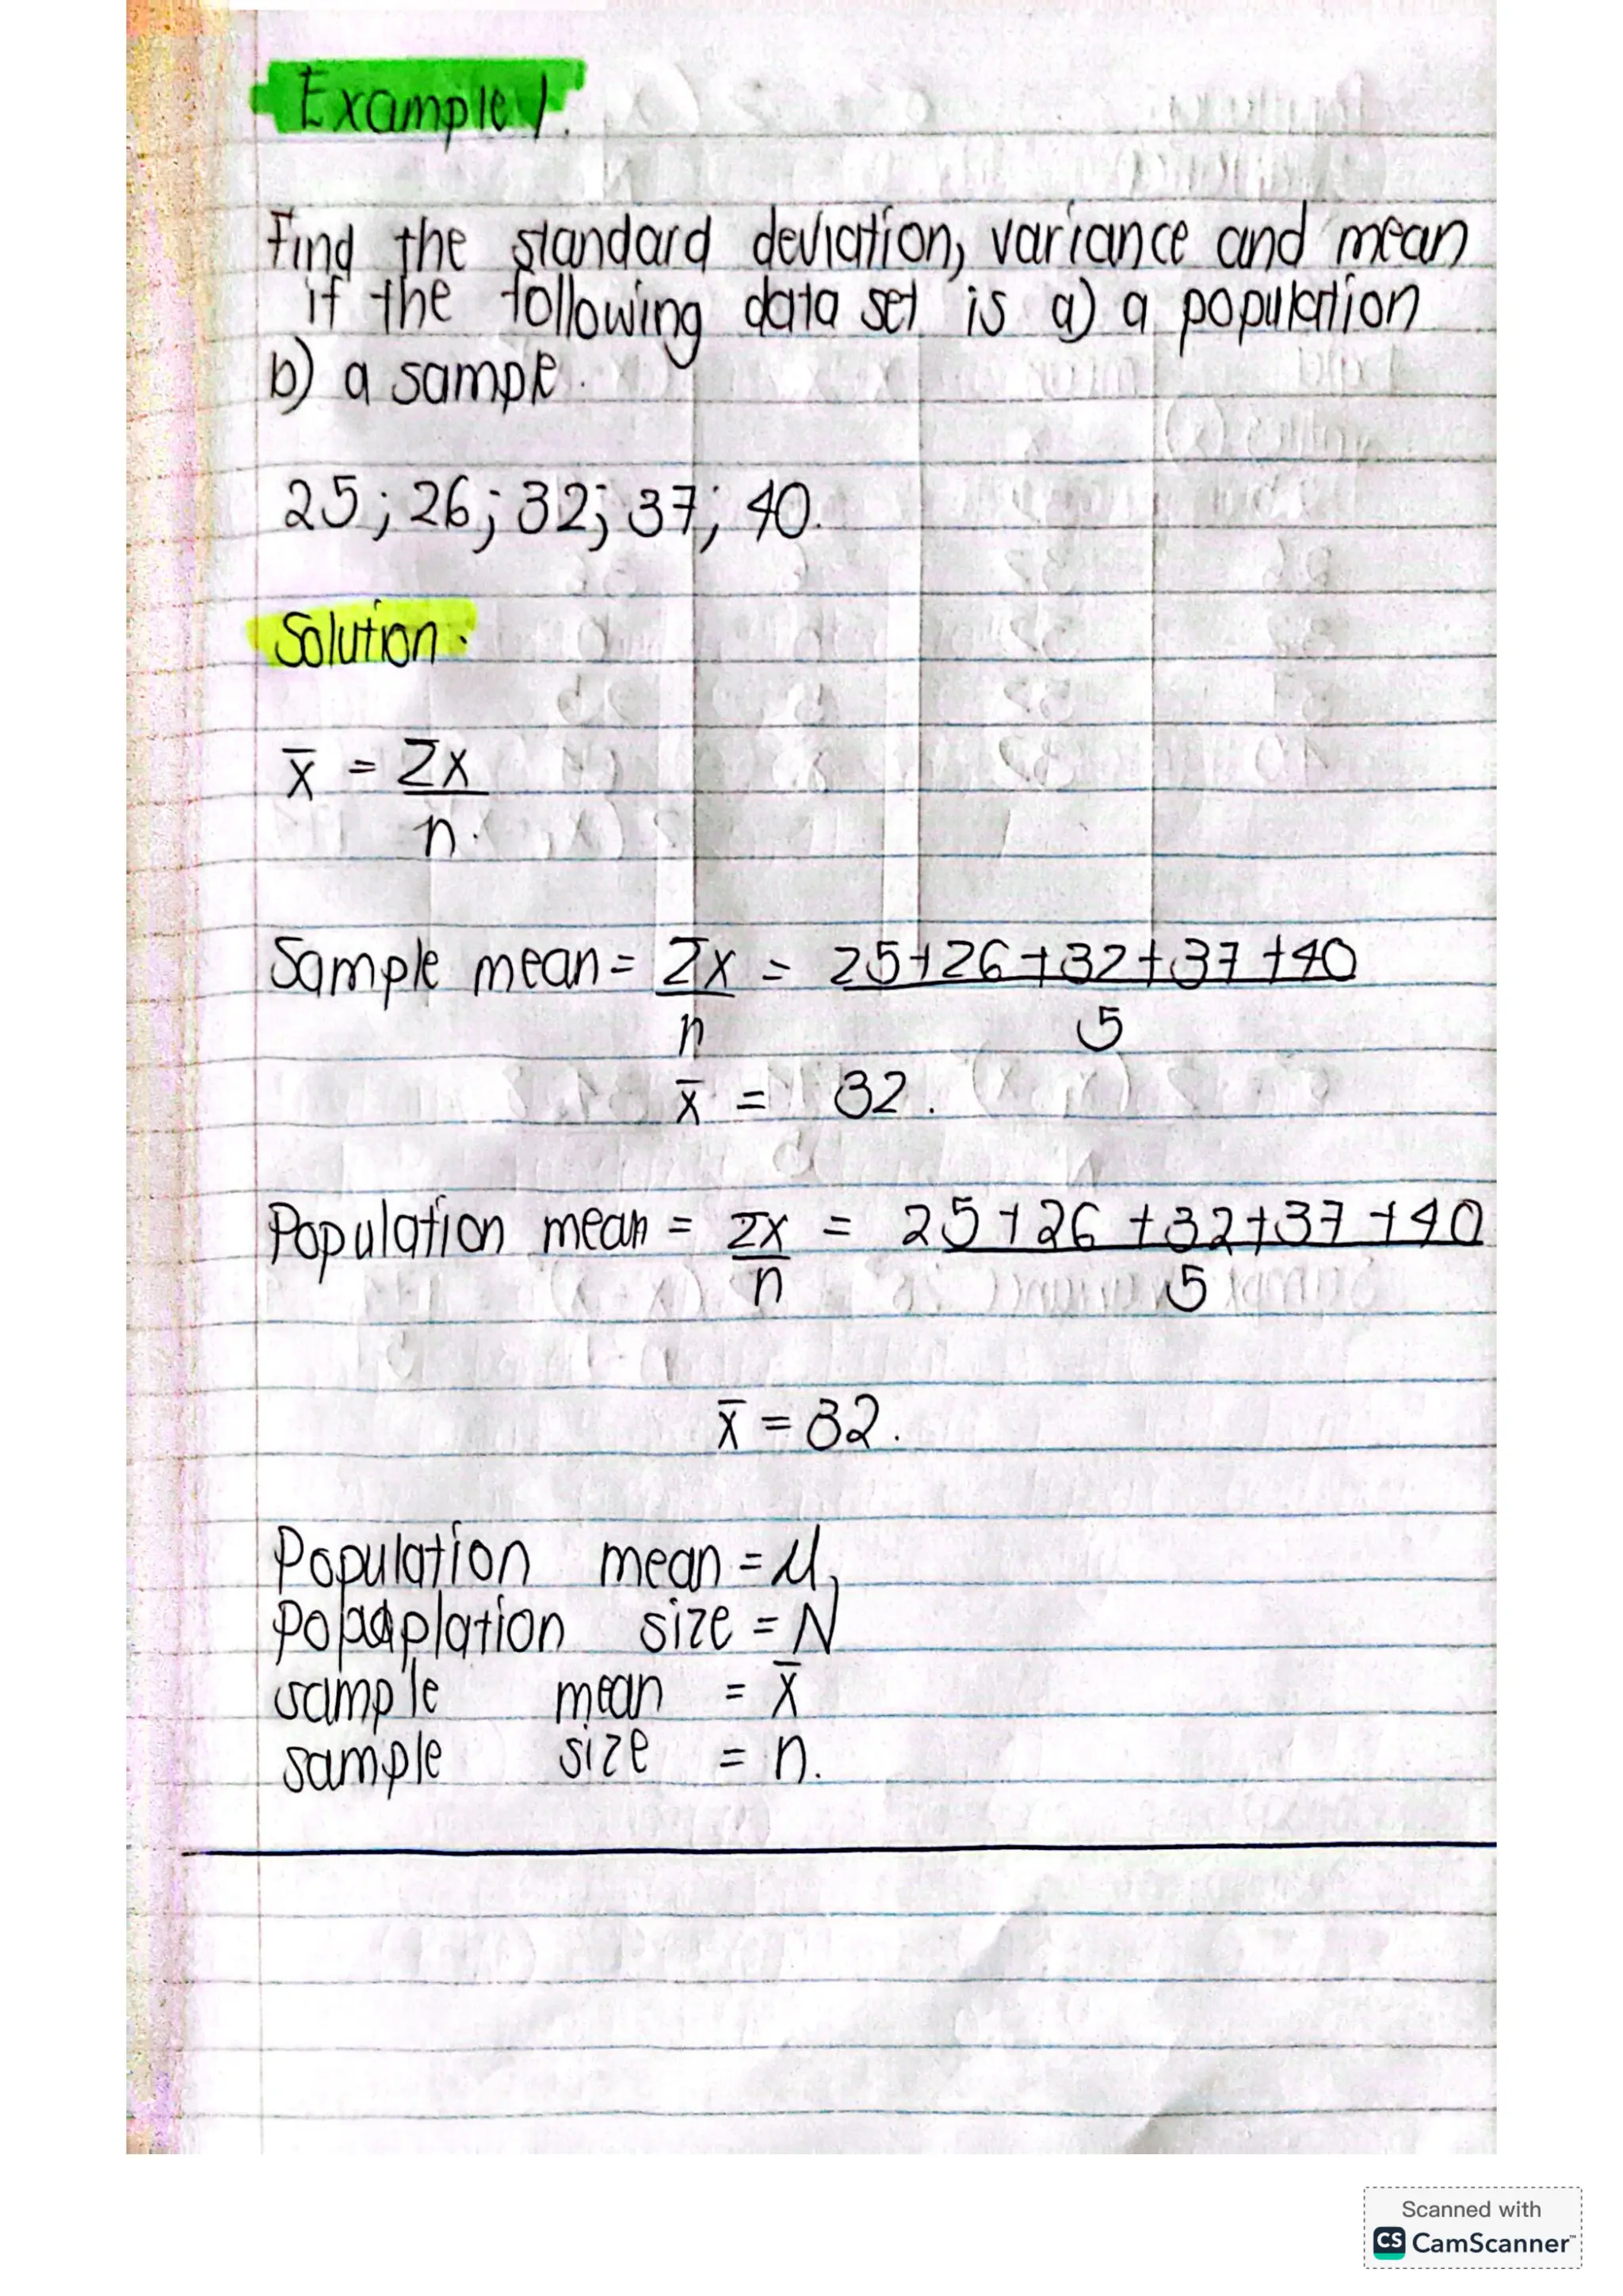 Example 1.
Find the standard deviation, variance and mean
if the following data set is a) a population
b) a sample.
25; 26; 32; 37; 40.
Solution.
x̄ = Σx
n.
Sample mean = Σx = 25+26+32+37+40
n 5
x̄ = 32.
Population mean = Σx = 25+26+32+37+40
n 5
x̄ = 32.
Population mean = μ,
size = N
sample mean = x̄
sample size = n.
Scanned with
CS CamScanner™